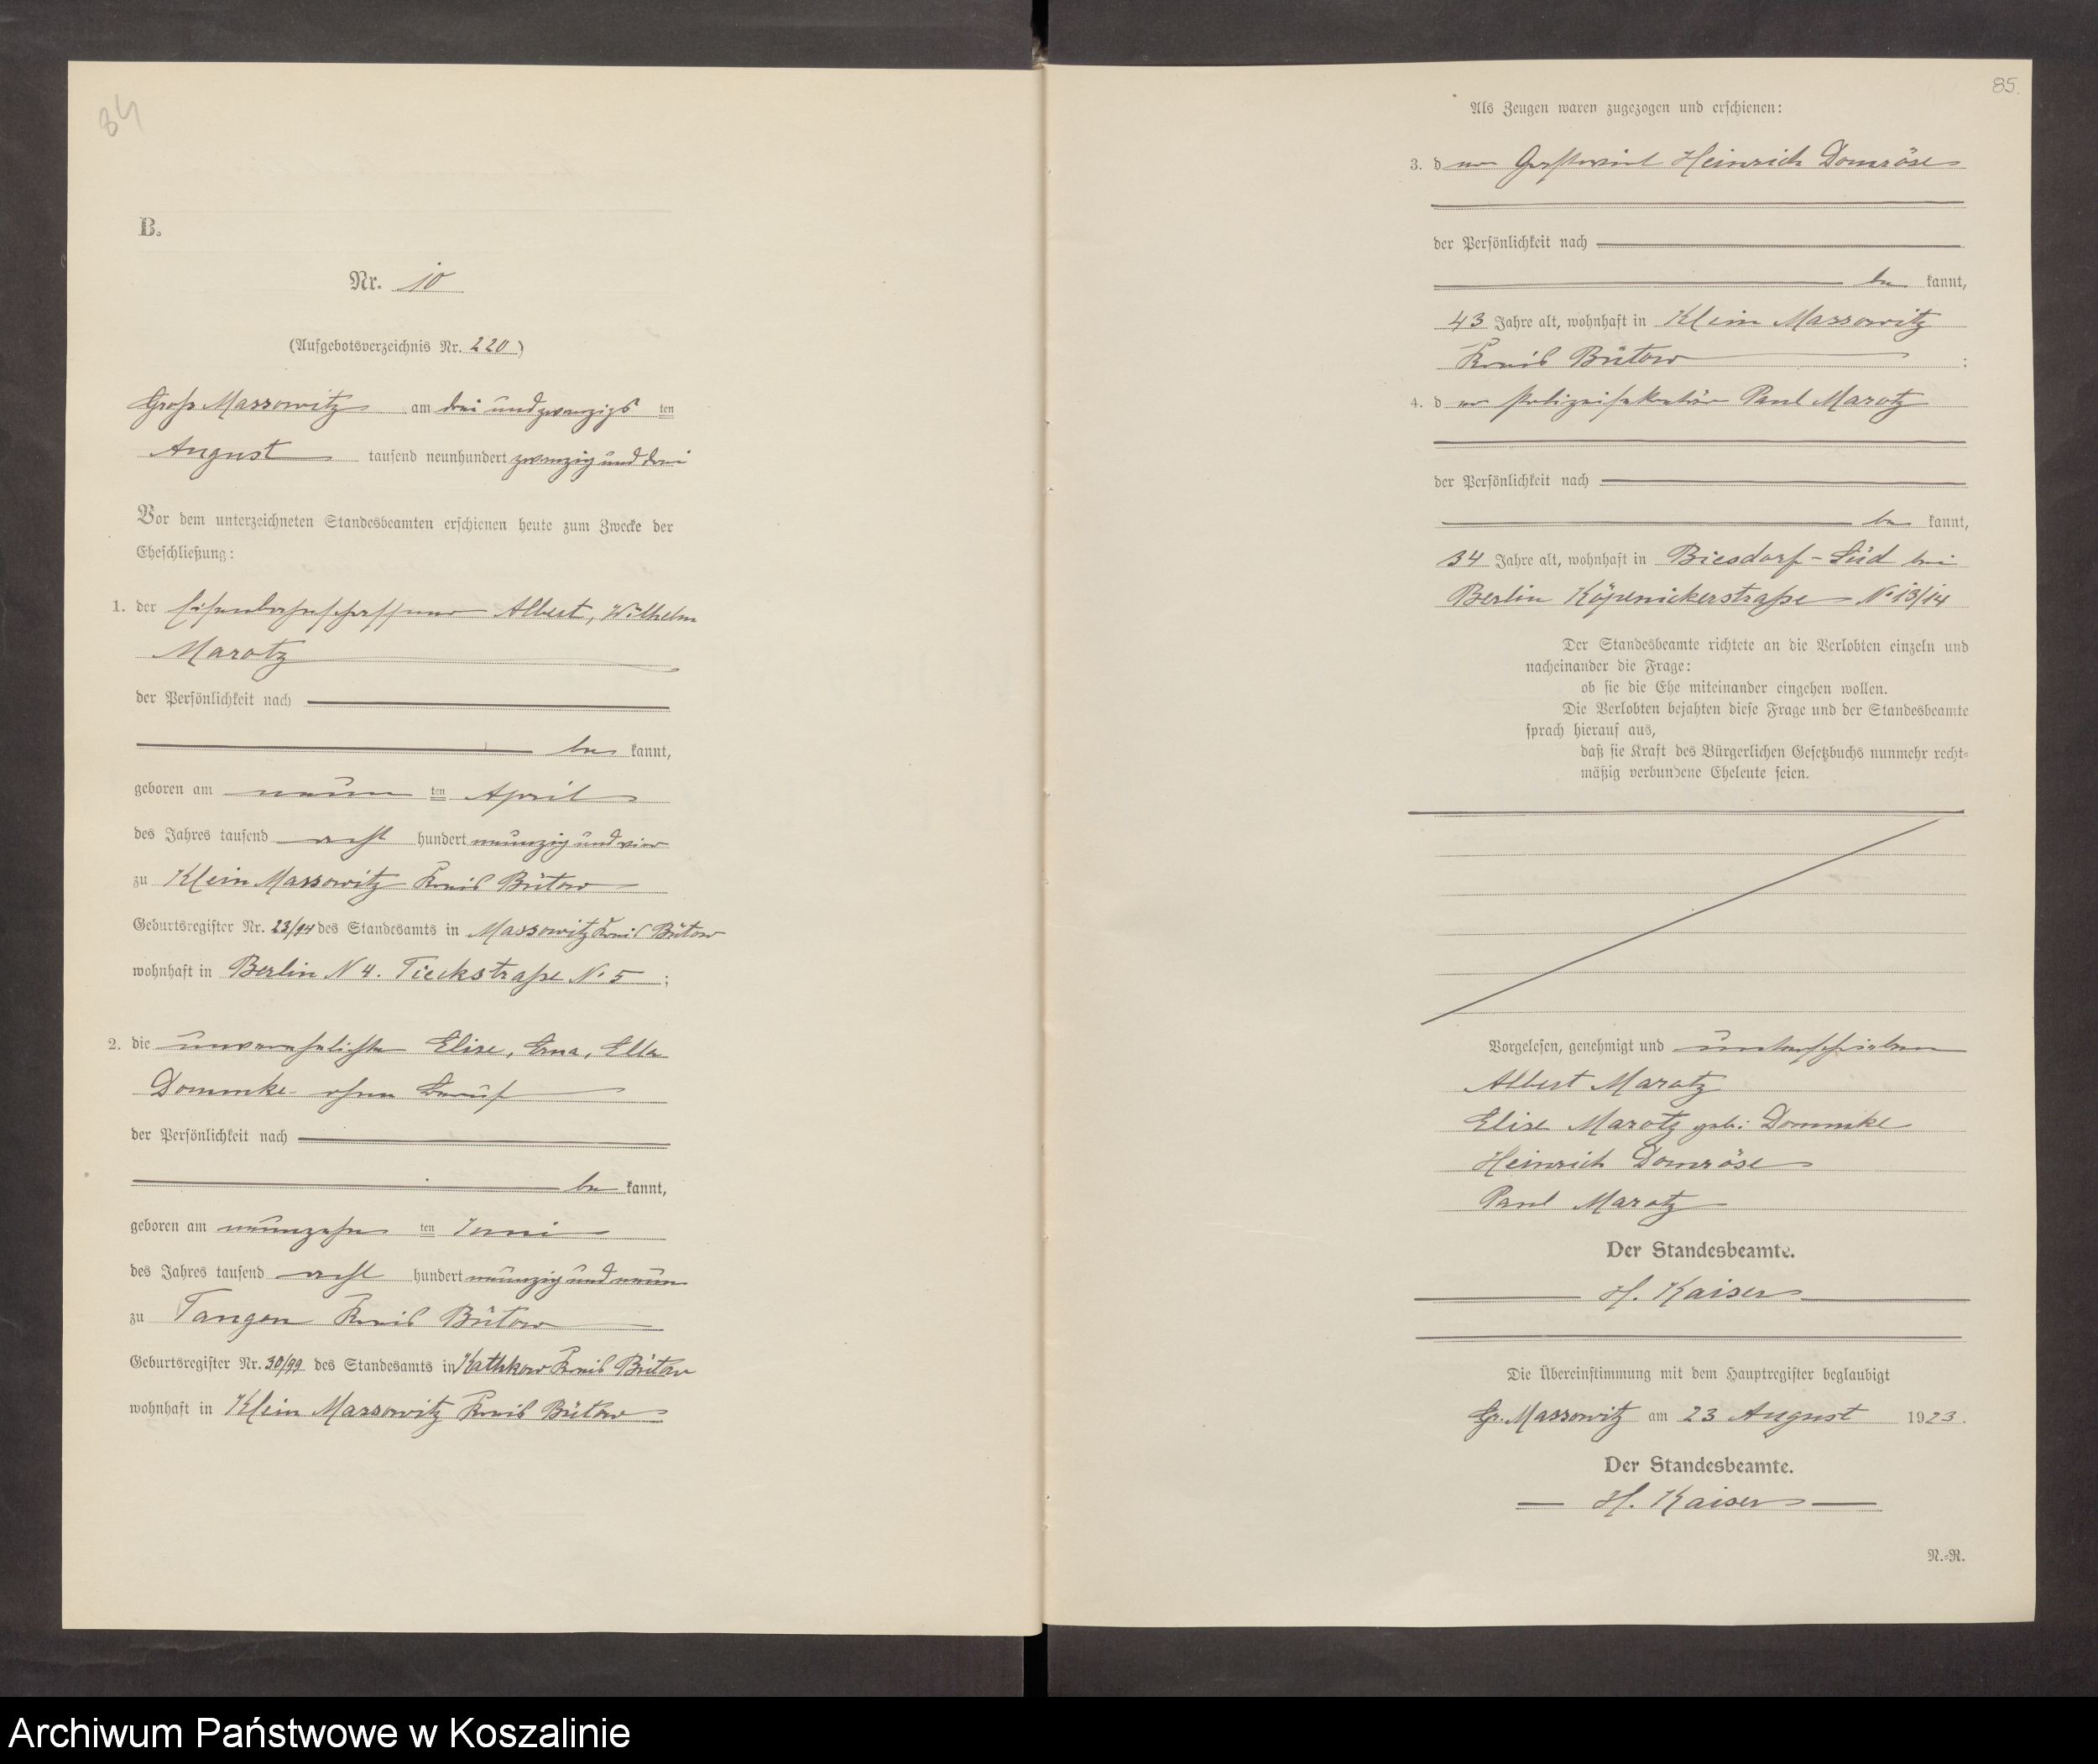 84
B.
Nr. 10
(Aufgebotsverzeichnis Nr. 220)
Groß Massowitz am drei und zwanzigs ten
August tausend neunhundert zwanzig und drei
Vor dem unterzeichneten Standesbeamten erschienen heute zum Zwecke der
Eheschließung:
1. der Eisenbahnschaffner Albert, Wilhelm
Marotz
der Persönlichkeit nach
be kannt,
geboren am neun ten April
des Jahres tausend acht hundert neunzig und vier
zu Klein Massowitz Kreis Bütow
Geburtsregister Nr. 23/94 des Standesamts in Massowitz Kreis Bütow
wohnhaft in Berlin N 4. Tieckstraße No 5;
2. die unverehelichte Elise, Erna, Ella
Dommke ohne Beruf
der Persönlichkeit nach
be kannt,
geboren am neunzehn ten Juni
des Jahres tausend acht hundert neunzig und neun
zu Tangen Kreis Bütow
Geburtsregister Nr. 30/99 des Standesamts in Kathkow Kreis Bütow
wohnhaft in Klein Massowitz Kreis Bütow
85.
Als Zeugen waren zugezogen und erschienen:
3. d er Gastwirt Heinrich Domröse
der Persönlichkeit nach
be kannt,
43 Jahre alt, wohnhaft in Klein Massowitz
Kreis Bütow ;
4. d er Polizeisekretär Paul Marotz
der Persönlichkeit nach
be kannt,
34 Jahre alt, wohnhaft in Biesdorf-Süd bei
Berlin Köpenickerstraße No 13/14
Der Standesbeamte richtete an die Verlobten einzeln und
nacheinander die Frage:
ob sie die Ehe miteinander eingehen wollen.
Die Verlobten bejahten diese Frage und der Standesbeamte
sprach hierauf aus,
daß sie Kraft des Bürgerlichen Gesetzbuchs nunmehr recht=
mäßig verbundene Eheleute seien.
Vorgelesen, genehmigt und unterschrieben
Albert Marotz
Elise Marotz geb: Dommke
Heinrich Domröse
Paul Marotz
Der Standesbeamte.
H. Kaiser
Die Übereinstimmung mit dem Hauptregister beglaubigt
Gr. Massowitz am 23 August 1923.
Der Standesbeamte.
H. Kaiser
N.=R.
Archiwum Państwowe w Koszalinie